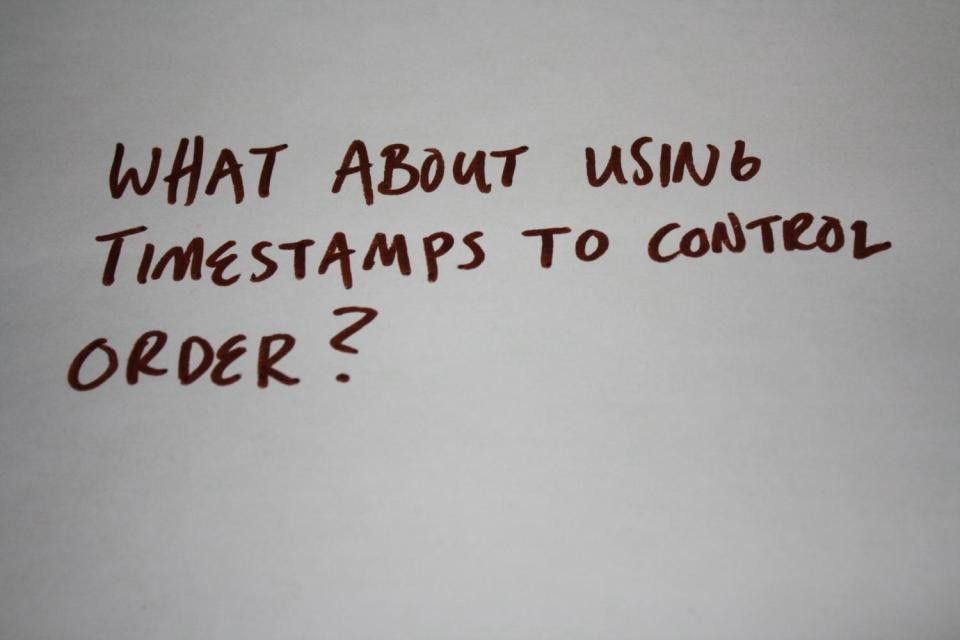 WHAT ABOUT USING
TIMESTAMPS TO CONTROL
ORDER?